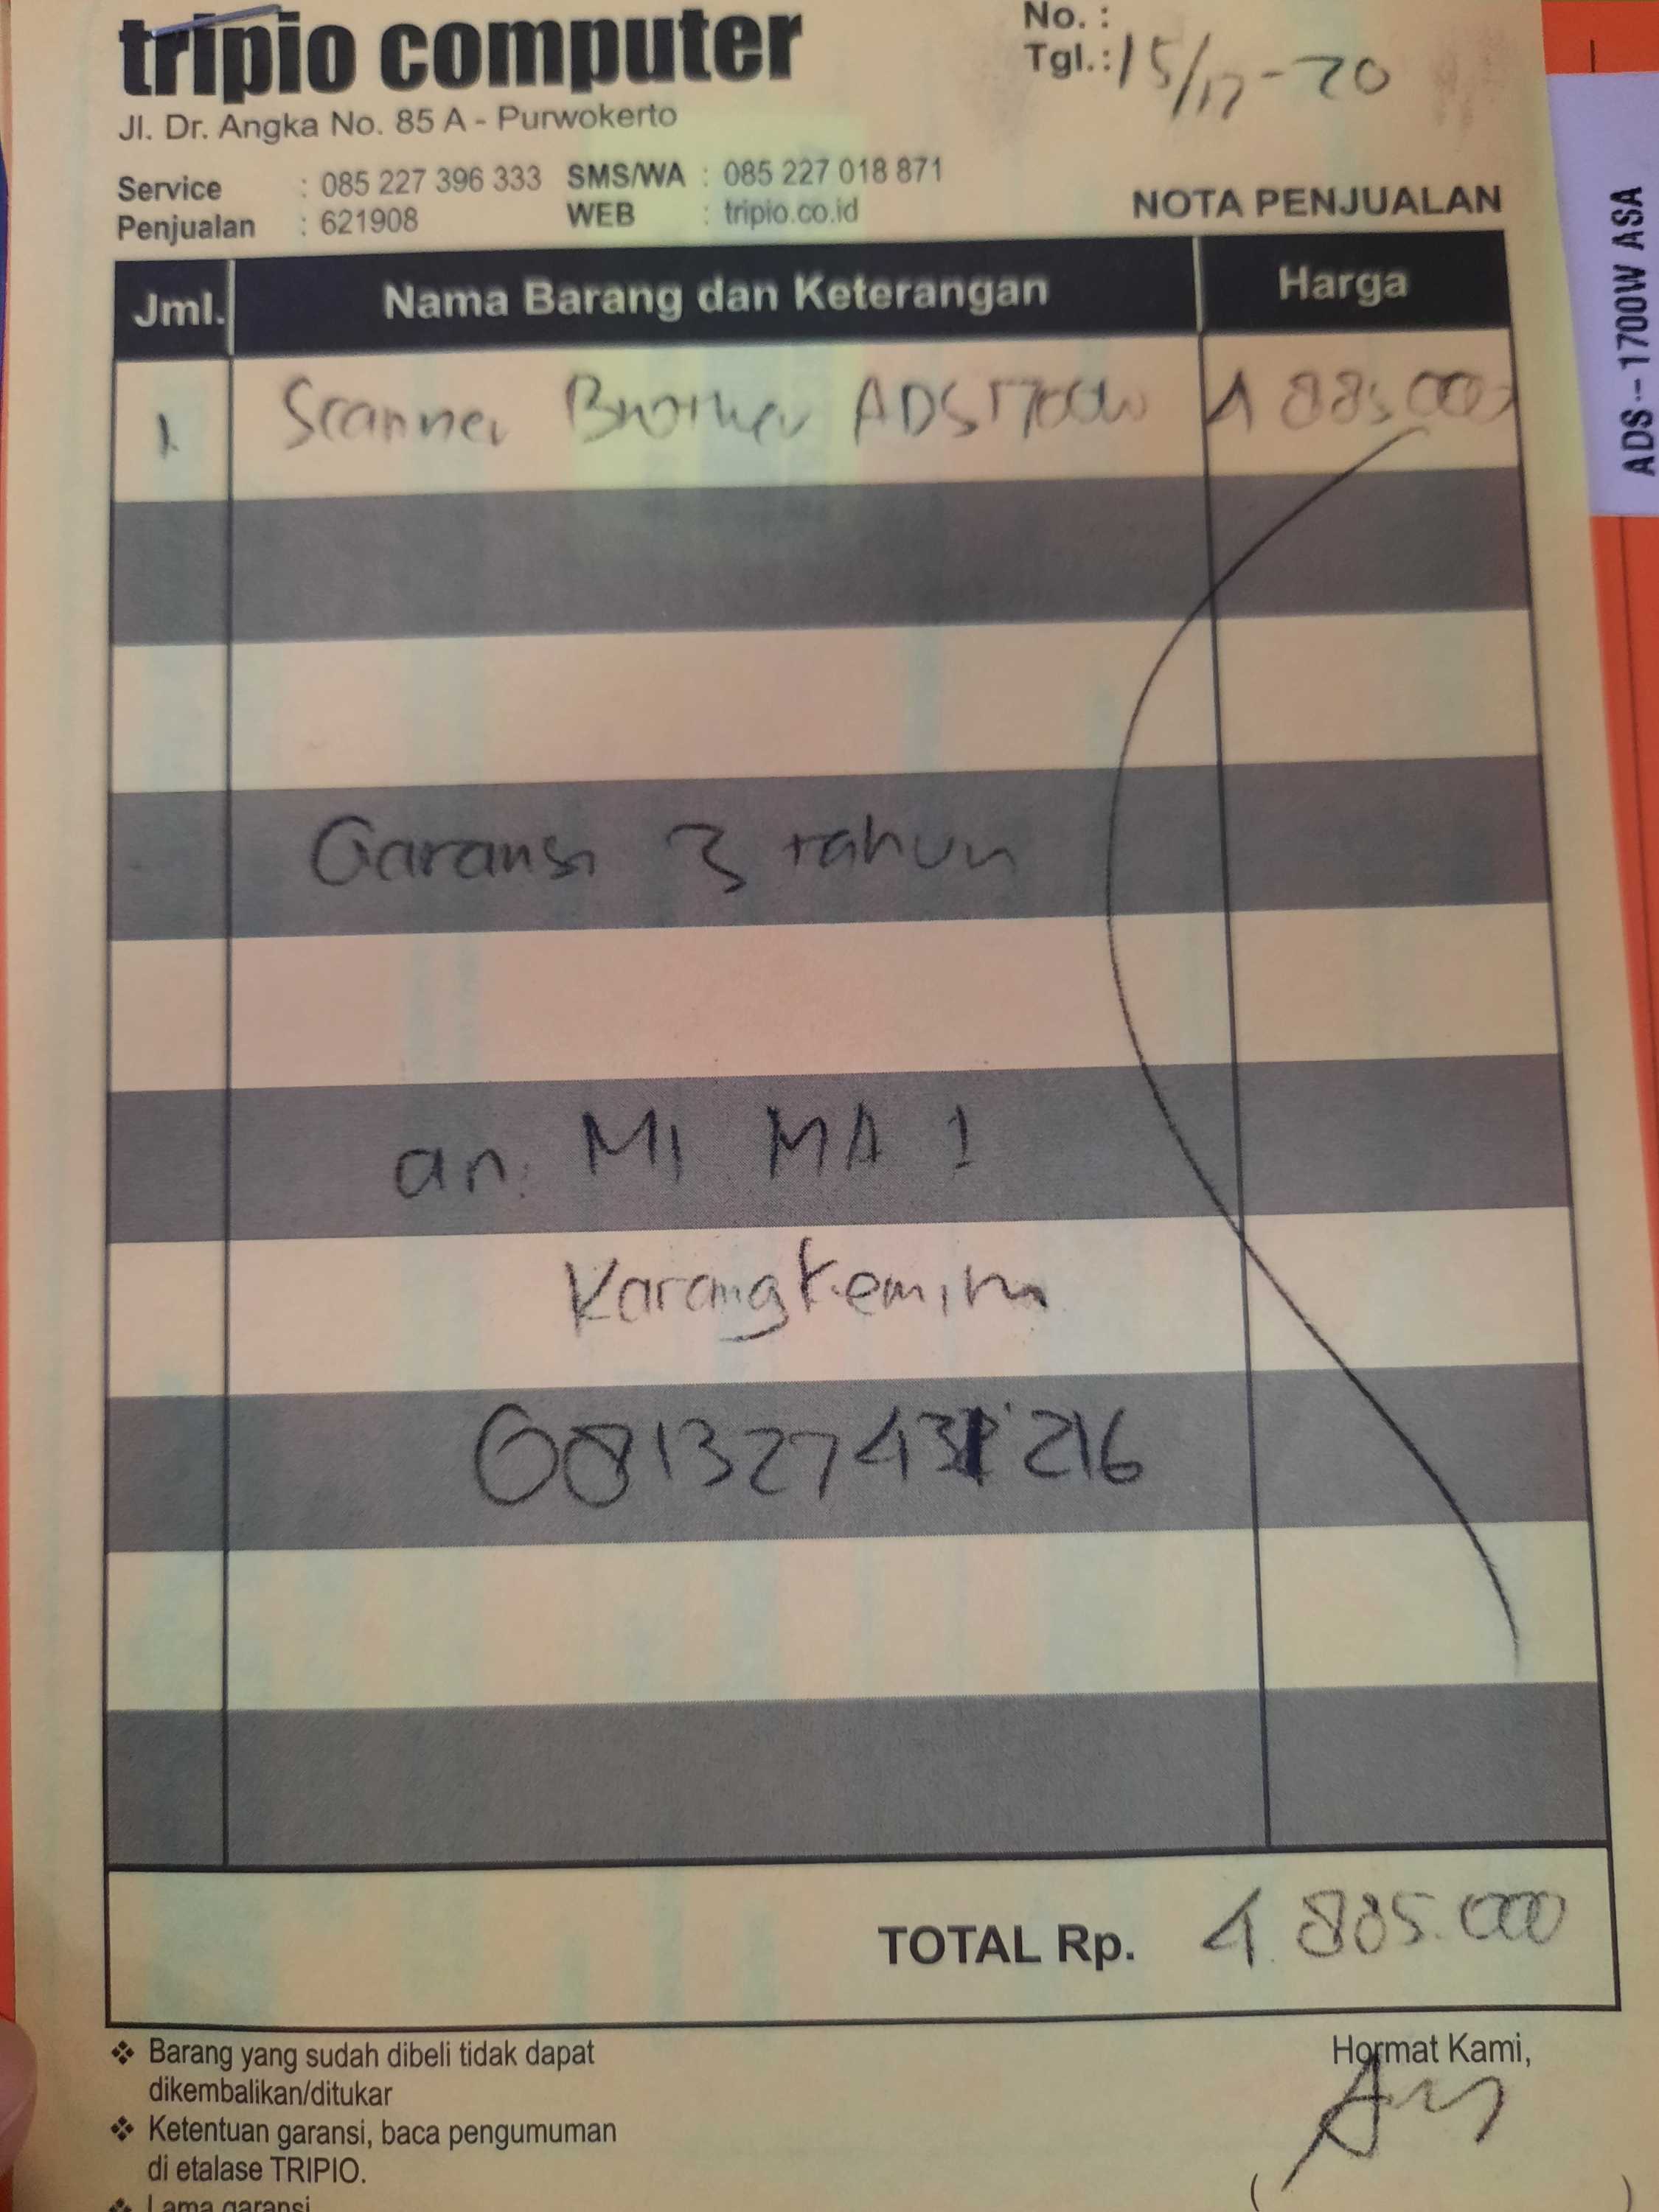 tripio computer
Jl. Dr. Angka No. 85 A - Purwokerto
No. :
Tgl.: 15/12-20
Service : 085 227 396 333 SMS/WA : 085 227 018 871
Penjualan : 621908 WEB : tripio.co.id
NOTA PENJUALAN
Jml. Nama Barang dan Keterangan Harga
1. Scanner Brother ADS1700W 4 885.000
Garansi 3 tahun
an. MI MA 1
Karangkemiri
081327431216
TOTAL Rp. 4.885.000
❖ Barang yang sudah dibeli tidak dapat
dikembalikan/ditukar
❖ Ketentuan garansi, baca pengumuman
di etalase TRIPIO.
❖ Lama garansi
Hormat Kami,
( )
ADS-1700W ASA